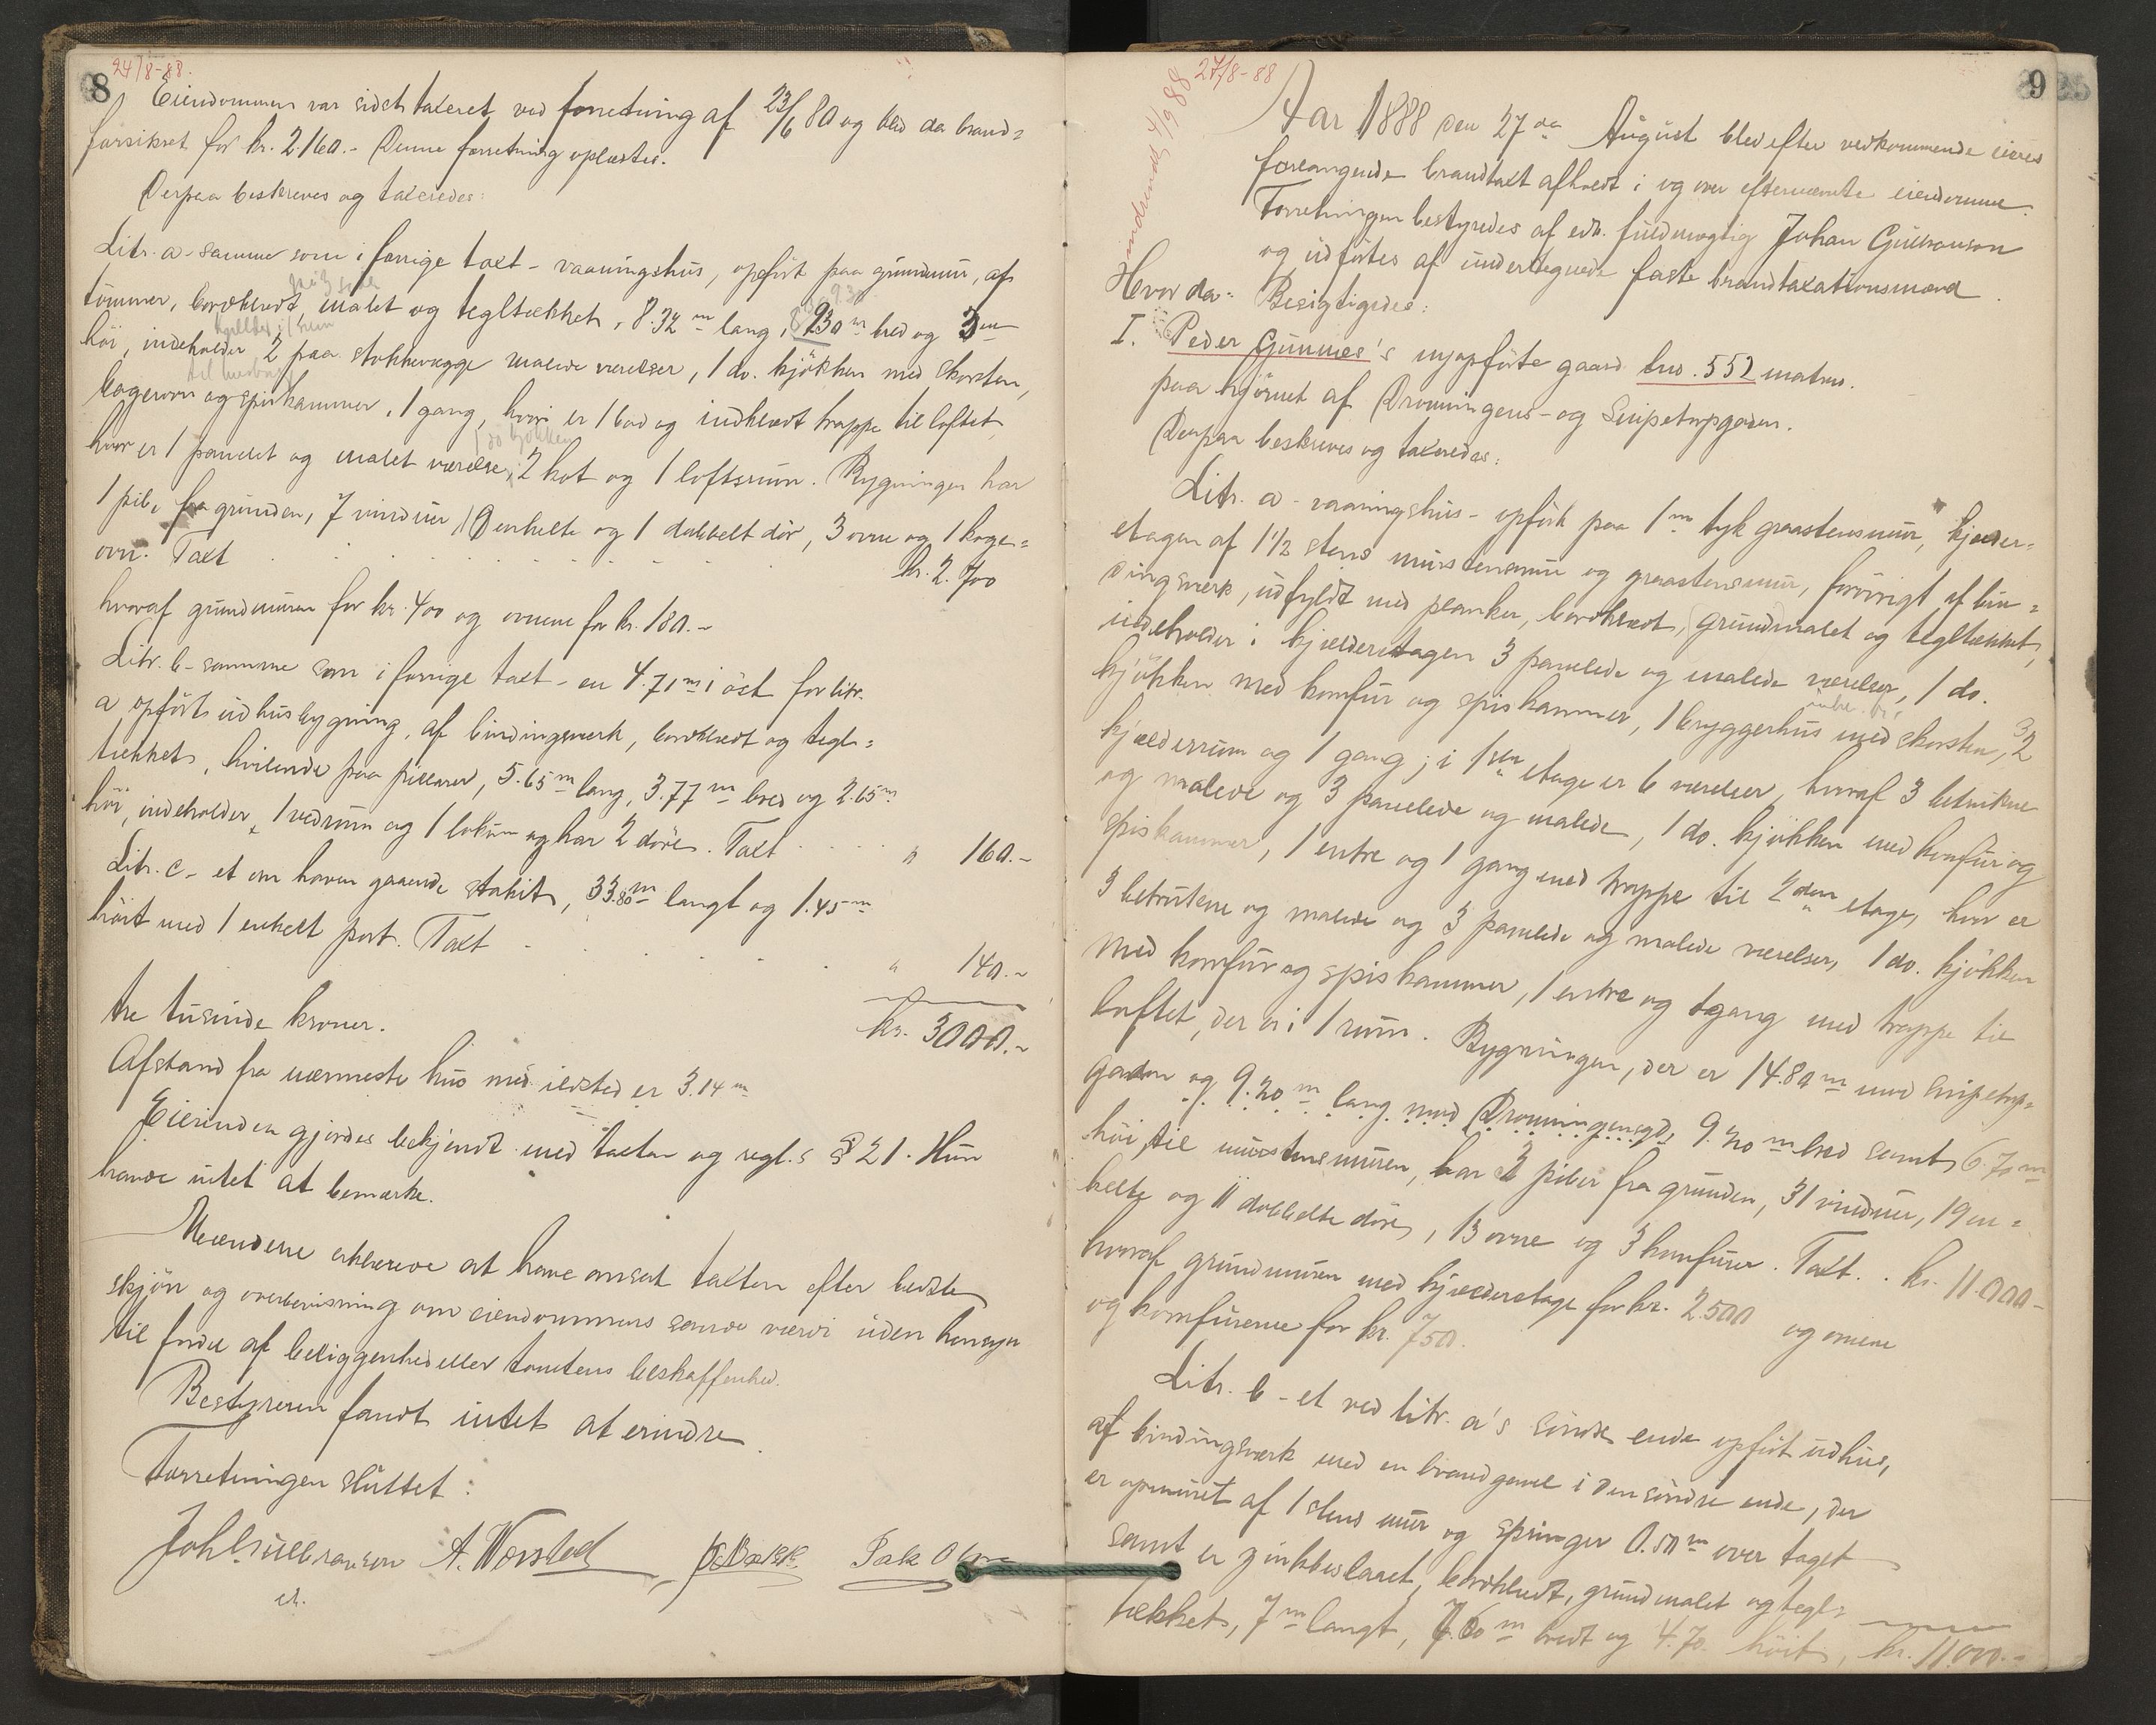 8
24/8-88.
Eiendommen var sidst taxeret ved forretning af 23/6 80 og blev da brand=
forsikret for kr. 2.160.- Denne forretning oplæstes.
Derpaa beskreves og taxeredes:
Litr. a - samme som i forrige taxt - vaaningshus, opført paa grundmur, af
paa 3 sider
tømmer, bordklædt, malet og tegltækket, 8.32 m lang, 9.30 m bred og 3 m
høi, indeholder 2 paa stokkevægge malede værelser, 1 do. kjøkken med skorsten,
bagerovn og spiskammer, 1 gang, hvori er 1 bod og indklædt trappe til loftet,
1 do kjøkken
hvor er 1 panelet og malet værelse, 2 kot og 1 loftsrum. Bygningen har
1 pibe fra grunden, 7 vinduer, 10 enkelte og 1 dobbelt dør, 3 ovne og 1 koge=
ovn. Taxt . . . . . . . . . kr. 2.700
hvoraf grundmuren for kr. 400 og ovnene for kr. 180.-
Litr. b - samme som i forrige taxt - en 4.71 m i øst for litr.
a opført udhusbygning, af bindingsverk, bordklædt og tegl=
tækket, hvilende paa pillarer, 5.65 m lang, 3.77 m bred og 2.65 m
høi, indeholder 1 vedrum og 1 lokum og har 2 døre. Taxt . . . . " 160.-
Litr. c - et om haven gaaende stakit, 33.80 m langt og 1.45 m
høit med 1 enkelt port. Taxt . . . . . . " 140.-
tre tusinde kroner. kr. 3000.-
Afstand fra nærmeste hus med ildsted er 3.14 m
Eierinden gjordes bekjendt med taxten og regl.s § 21. Hun
havde intet at bemærke.
Mændene erklærede at have ansat taxten efter bedste
skjøn og overbevisning om eiendommens sande værdi uden hensyn
til fordel af beliggenhed eller tomtens beskaffenhed.
Bestyreren fandt intet at erindre.
Forretningen sluttet:
Joh Gulbranson A. Worsted Isak Olsen
9
27/8-88
4/9 88
Aar 1888 den 27de August blev efter vedkommende eieres
forlangende brandtaxt afholdt i og over efternævnte eiendomme.
Forretningen bestyredes af edv. fuldmægtig Johan Gulbranson
og udførtes af undertegnede faste brandtaxationsmænd.
Hvor da: Besigtigedes:
I. Peder Gunnes's nyopførte gaard bno. 552 matrno.
paa hjørnet af Dronningens- og Snipetorpgaden.
Derpaa beskreves og taxeredes:
Litr. a - vaaningshus - opført paa 1 m tyk graastensmur, kjælder=
etagen af 1 1/2 stens murstensmur og graastensmur, forøvrigt af bin=
dingsverk, udfyldt med planker, bordklædt, grundmalet og tegltækket,
indeholder i kjælderetagen 3 panelede og malede værelser, 1 do.
kjøkken med komfur og spiskammer, 1 bryggerhus med skorsten, 2
kjælderrum og 1 gang; i 1ste etage er 6 værelser, hvoraf 3 betrukne
og malede og 3 panelede og malede, 1 do. kjøkken med komfur og
spiskammer, 1 entre og 1 gang med trappe til 2den etage, hvor er
3 betrukne og malede og 3 panelede og malede værelser, 1 do. kjøkken
med komfur og spiskammer, 1 entre og 1 gang med trappe til
loftet, der er i 1 rum. Bygningen, der er 14.80 m mod Snipetorp=
gaden og 9.20 m lang mod Dronningensgd., 9.20 m bred samt 6.70 m
høi til murstensmuren, har 2 piber fra grunden, 31 vinduer, 19 en=
kelte og 11 dobbelte døre, 13 ovne og 3 komfurer. Taxt . . kr. 11.000-
hvoraf grundmuren med kjælderetage for kr. 2.500 og ovnene
og komfurerne for kr. 750.
Litr. b - et ved litr. a's søndre ende opført udhus,
af bindingsverk med en brandgavl i den søndre ende, der
er opmuret af 1 stens mur og springer 0.50 m over taget
samt er zinkbeslaaet, bordklædt, grundmalet og tegl=
tækket, 7 m langt, 7.60 m bredt og 4.70 høit, kr. 11.000.-